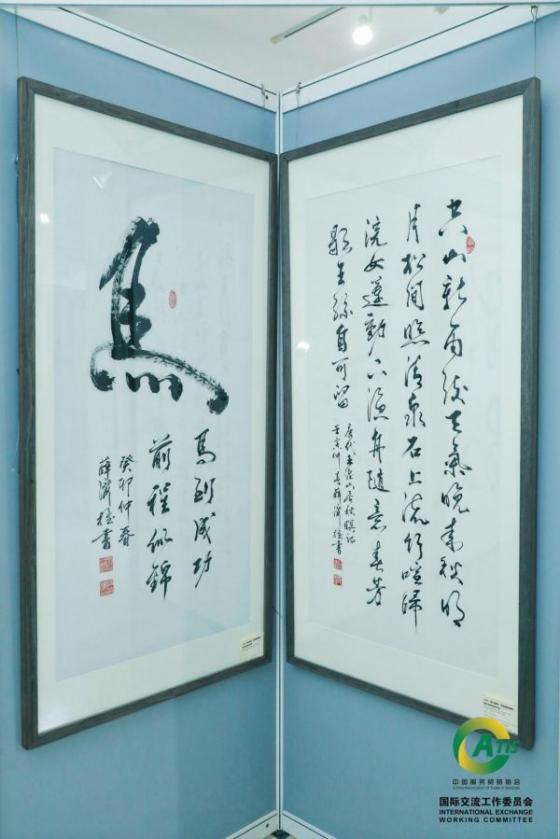 馬
馬到成功
前程似錦
癸卯仲春
薛濟書
空山新雨後天氣晚來秋明
月松間照清泉石上流竹喧歸
浣女蓮動下漁舟隨意春芳
歇王孫自可留
唐代王維山居秋暝詩
壬寅仲春薛濟書
CATIS
中国服务贸易协会
China Association of Trade in Services
国际交流工作委员会
INTERNATIONAL EXCHANGE
WORKING COMMITTEE